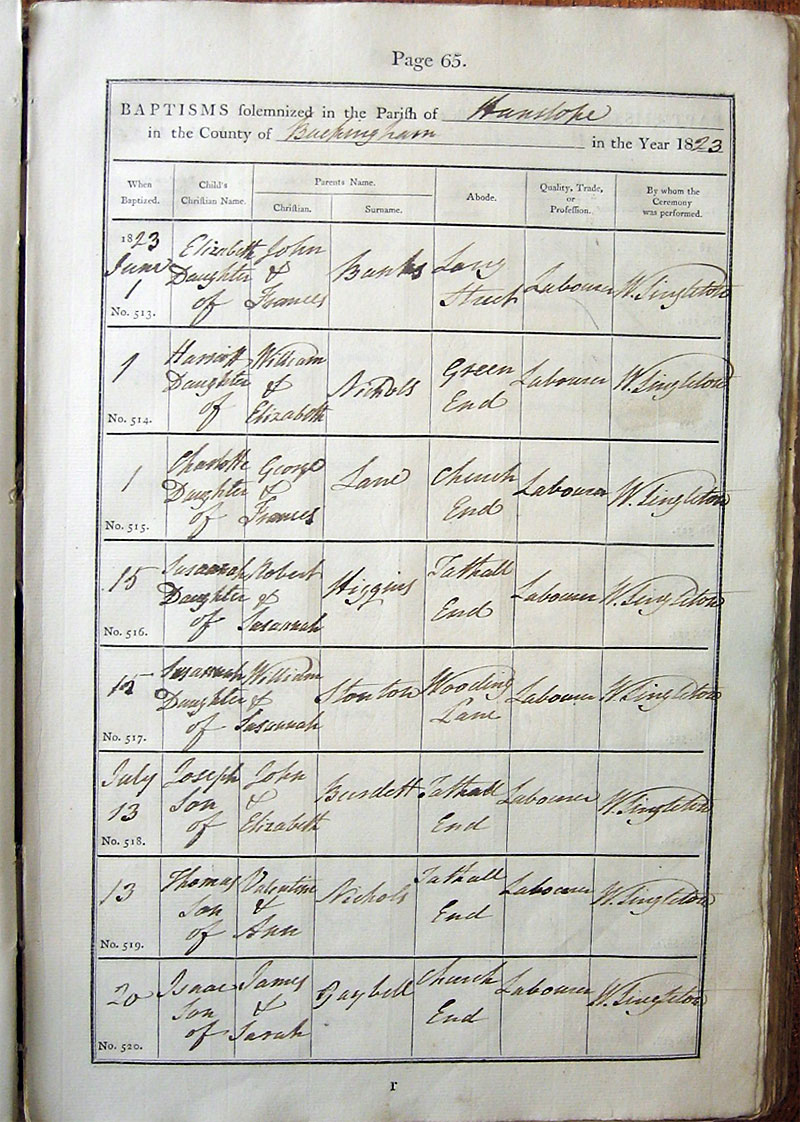 Page 65.
BAPTISMS solemnized in the Parish of Hanslope
in the County of Buckingham in the Year 1823
When Baptized. Child's Christian Name. Parents Name. Christian. Surname. Abode. Quality, Trade, or Profession. By whom the Ceremony was performed.
1823 June 1 No. 513. Elizabeth Daughter of John & Frances Banks Long Street Labourer W. Singleton
1 No. 514. Harriott Daughter of William & Elizabeth Nichols Green End Labourer W. Singleton
1 No. 515. Charlotte Daughter of George & Frances Lane Church End Labourer W. Singleton
15 No. 516. Susannah Daughter of Robert & Susannah Higgins Tathall End Labourer W. Singleton
15 No. 517. Susannah Daughter of William & Susannah Stonton Wooding Lane Labourer W. Singleton
July 13 No. 518. Joseph Son of John & Elizabeth Burdett Tathall End Labourer W. Singleton
13 No. 519. Thomas Son of Valentine & Ann Nichols Tathall End Labourer W. Singleton
20 No. 520. Isaac Son of James & Sarah Gaybell Church End Labourer W. Singleton
r